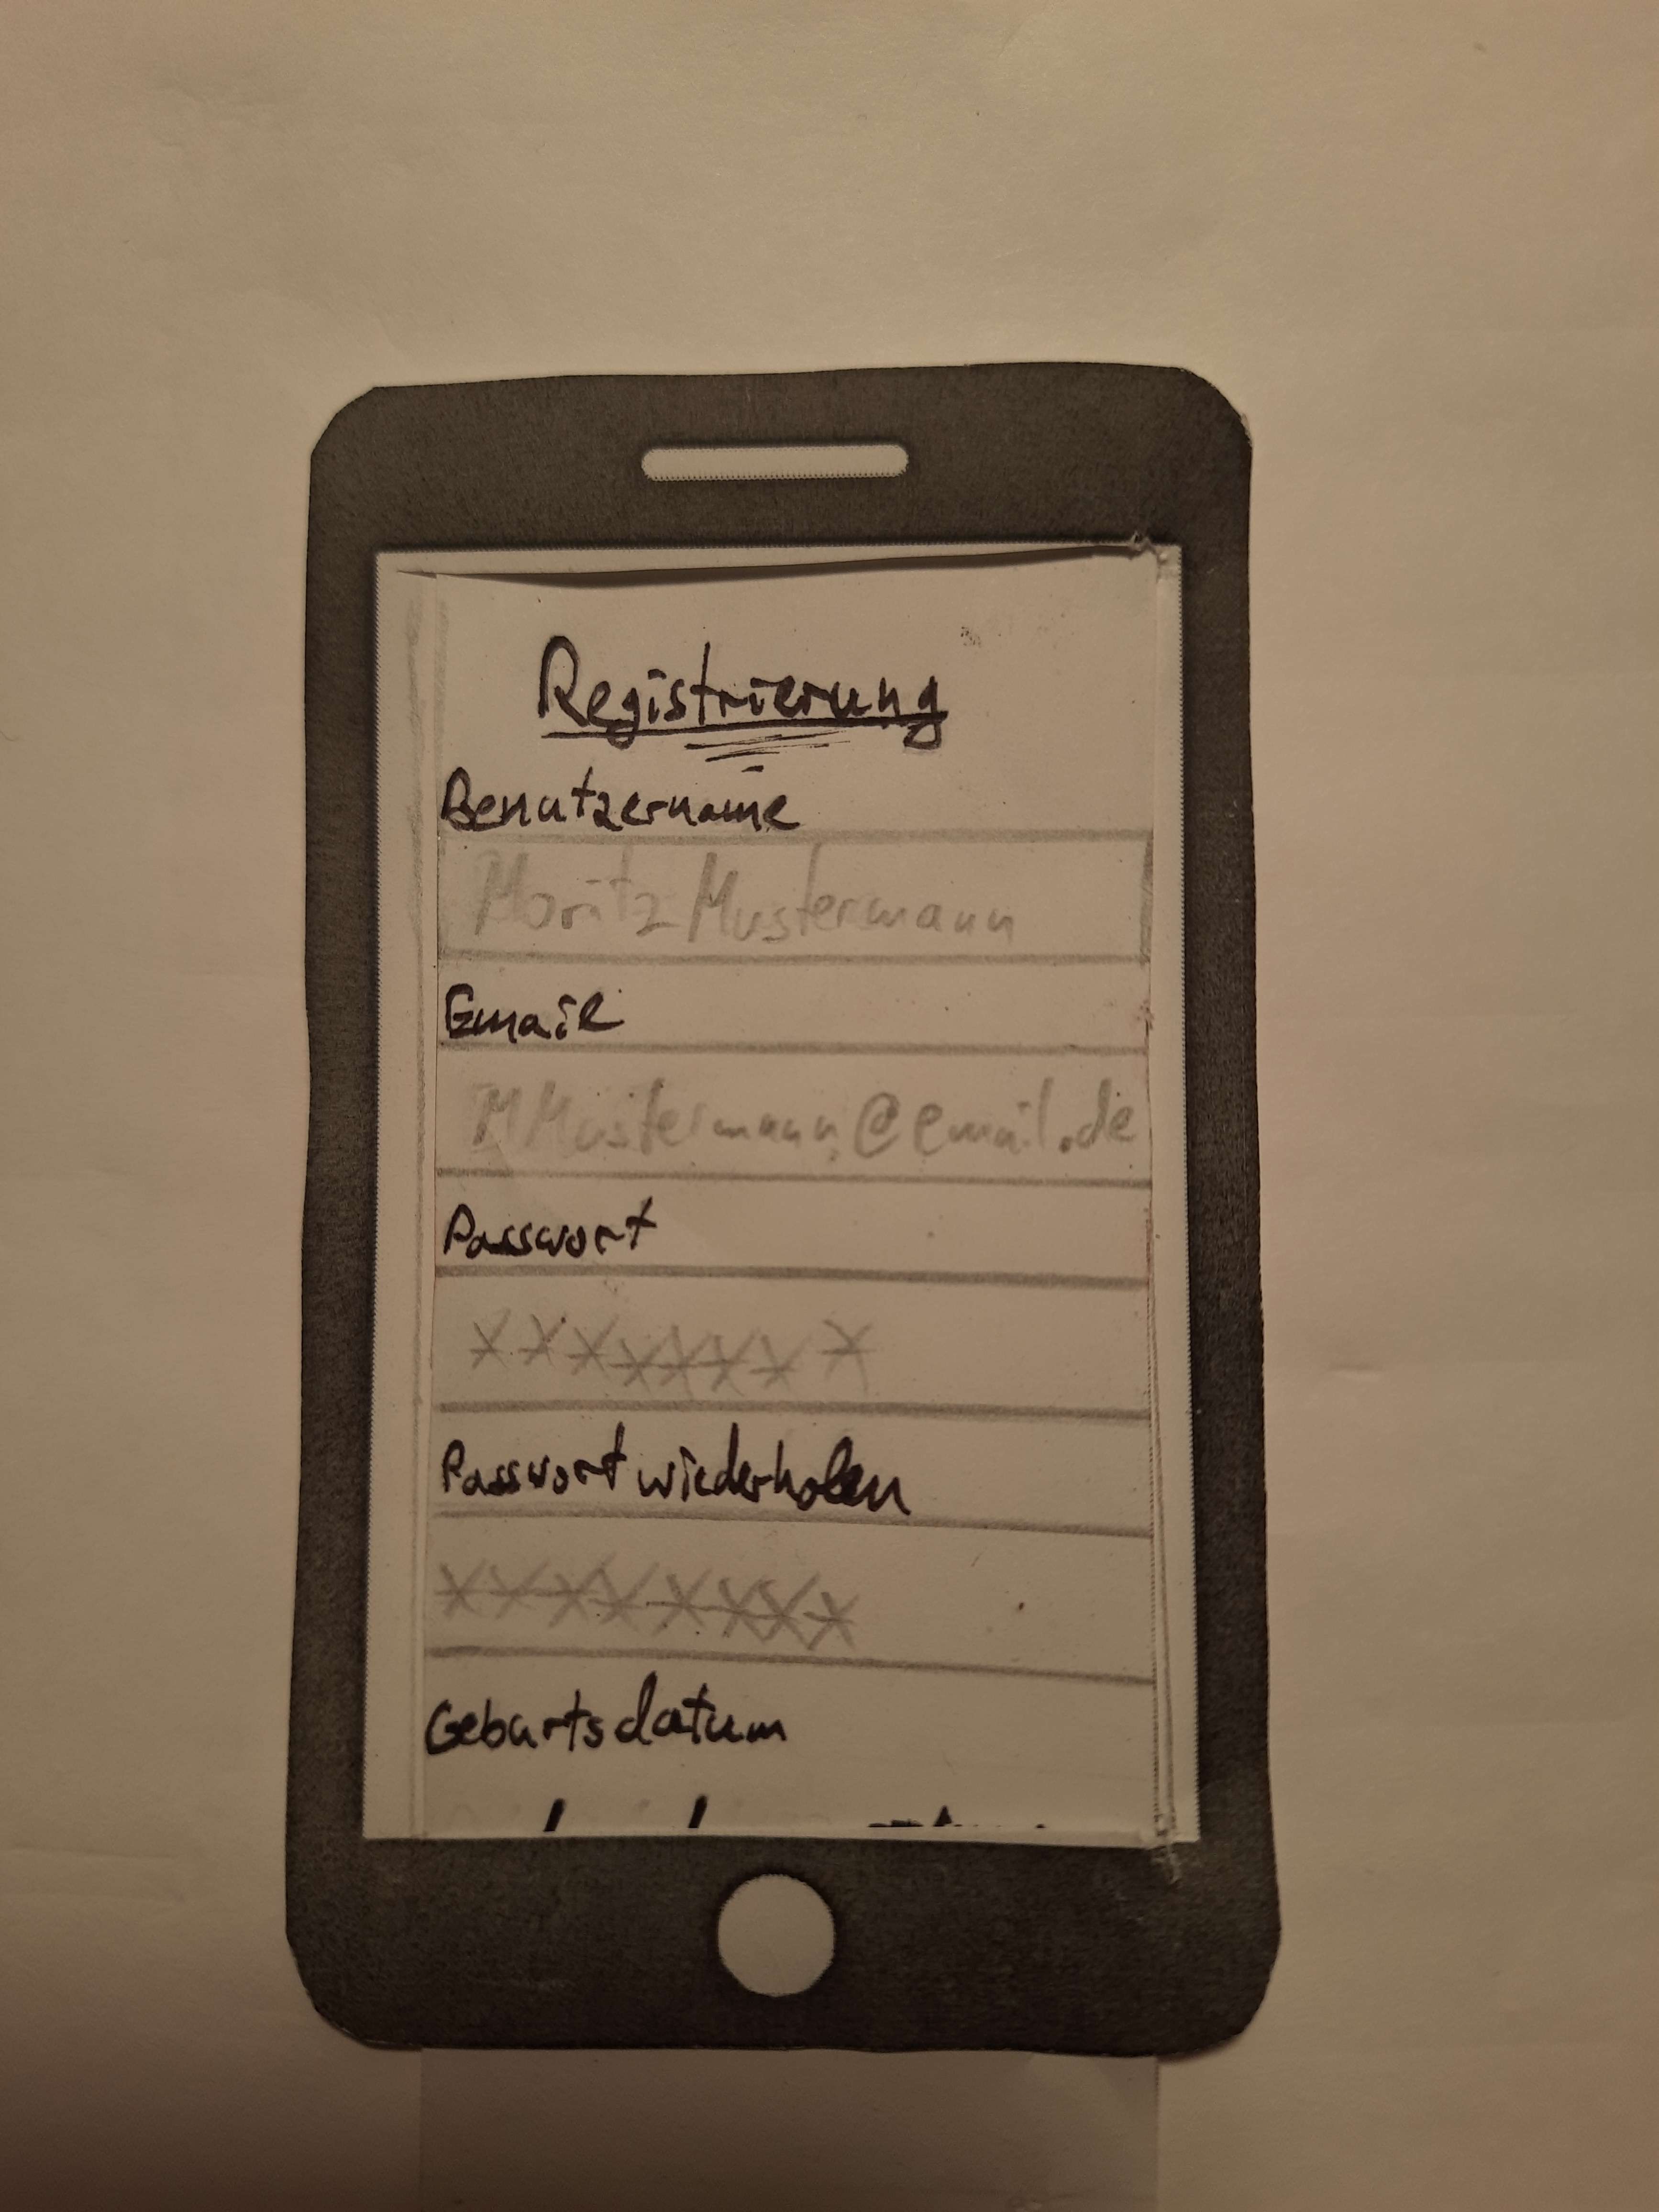 Registrierung
Benutzername
Moritz Mustermann
Email
MMustermann@email.de
Passwort
********
Passwort wiederholen
********
Geburtsdatum